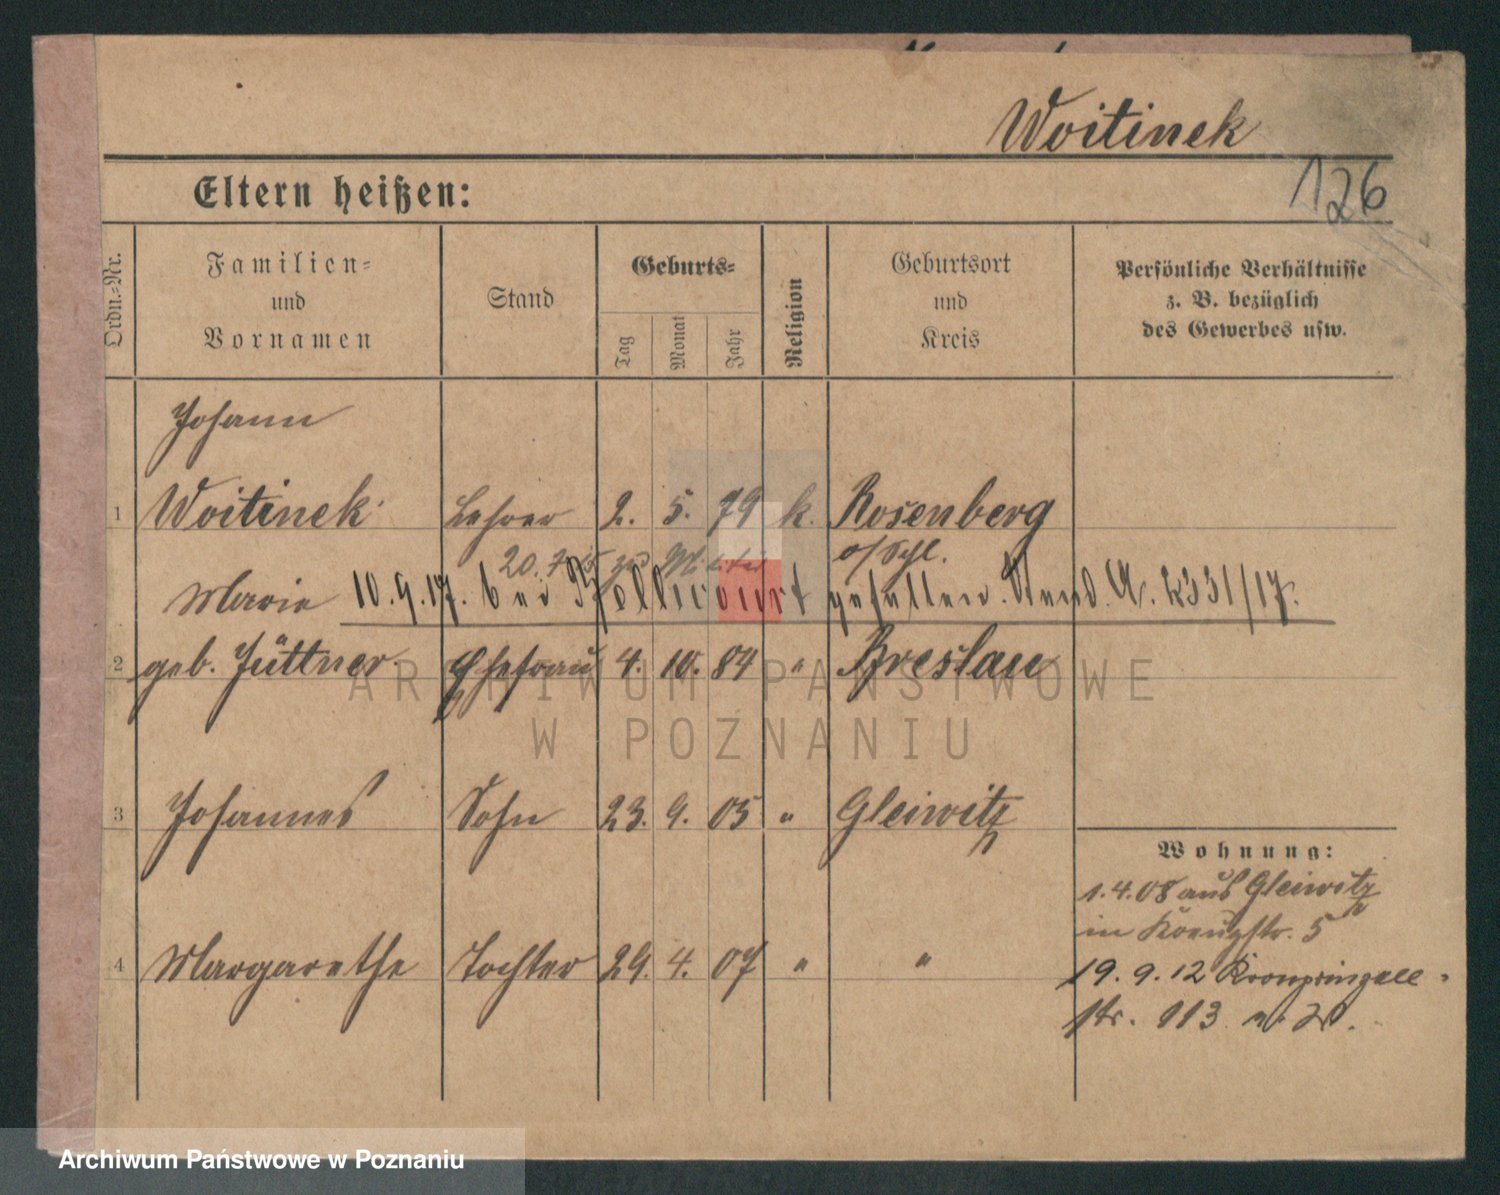 Woitinek
126
Eltern heißen:
Ordn.-Nr.
Familien- und Vornamen
Stand
Geburts-
Tag Monat Jahr
Religion
Geburtsort und Kreis
Persönliche Verhältnisse
z. B. bezüglich
des Gewerbes usw.
Johann
1 Woitinek Lehrer 2. 5. 79 k. Rosenberg
20. 7. 15 zu Militär o/Schl.
Marie 10. 9. 17. bei gefallen. Stand. A. 2331/17.
2 geb. Jüttner Ehefrau 4. 10. 84 " Breslau
3 Johannes Sohn 23. 9. 05 " Gleiwitz
4 Margarethe Tochter 29. 4. 07 " "
Wohnung:
1. 4. 08 aus Gleiwitz
in Kreuzstr. 5
19. 9. 12 Kronprinzen-
str. 113
ARCHIWUM PAŃSTWOWE
W POZNANIU
Archiwum Państwowe w Poznaniu